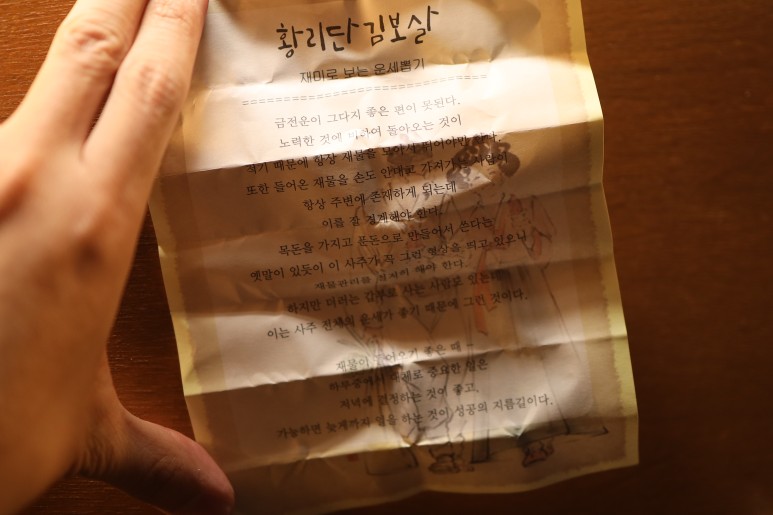 황리단김보살
재미로 보는 운세뽑기
금전운이 그다지 좋은 편이 못된다.
노력한 것에 돌아오는 것이
적기 때문에 항상 재물을
또한 들어온 재물을 손도 안대고 가져가는 사람이
항상 주변에 존재하게 되는데
이를 잘 경계해야 한다.
목돈을 가지고 푼돈으로 만들어서 쓴다는
옛말이 있듯이 이 사주가 꼭 그런 형상을 띄고 있으니
재물관리를 해야 한다.
하지만 더러는 갑부로 사는 사람도 있는데
이는 사주 전체의 운세가 좋기 때문에 그런 것이다.
재물이 좋은 때 -
하루중에서 중요한 일은
저녁에 결정하는 것이 좋고,
가능하면 늦게까지 일을 하는 것이 성공의 지름길이다.